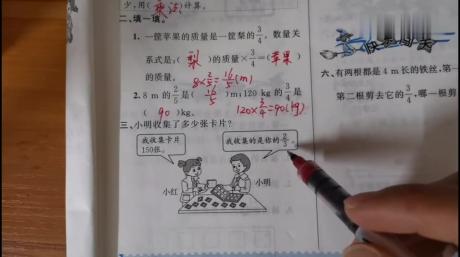 少,用(乘法)计算。
二、填一填。
1. 一筐苹果的质量是一筐梨的3/4, 数量关
系式是:(梨)的质量×3/4=(苹果)
的质量。
8×2/5=16/5(m)
2. 8 m的2/5是(16/5)m;120 kg的3/4是
(90)kg。
120×3/4=90(kg)
三、小明收集了多少张卡片?
我收集卡片
150张。
我收集的是你的2/3。
小红
小明
六、有两根都是4 m长的铁丝,第一
第二根剪去它的3/4,哪一根剪